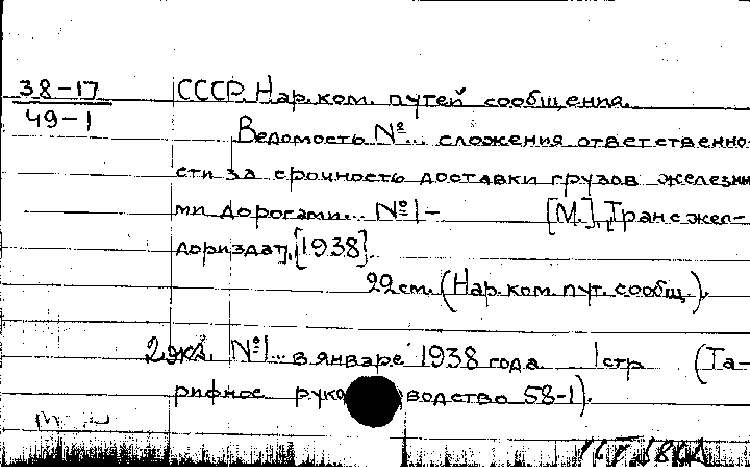 38-17
49-1
СССР. Нар. ком. путей сообщения.
Ведомость №... сложения ответственно-
сти за срочность доставки грузов железны-
ми дорогами... №1- [М.], Трансжел-
дориздат, [1938].
22 см. (Нар. ком. пут. сообщ.).
2 экз. №1... в январе 1938 года. 1 стр. (Та-
рифное руководство 58-1).